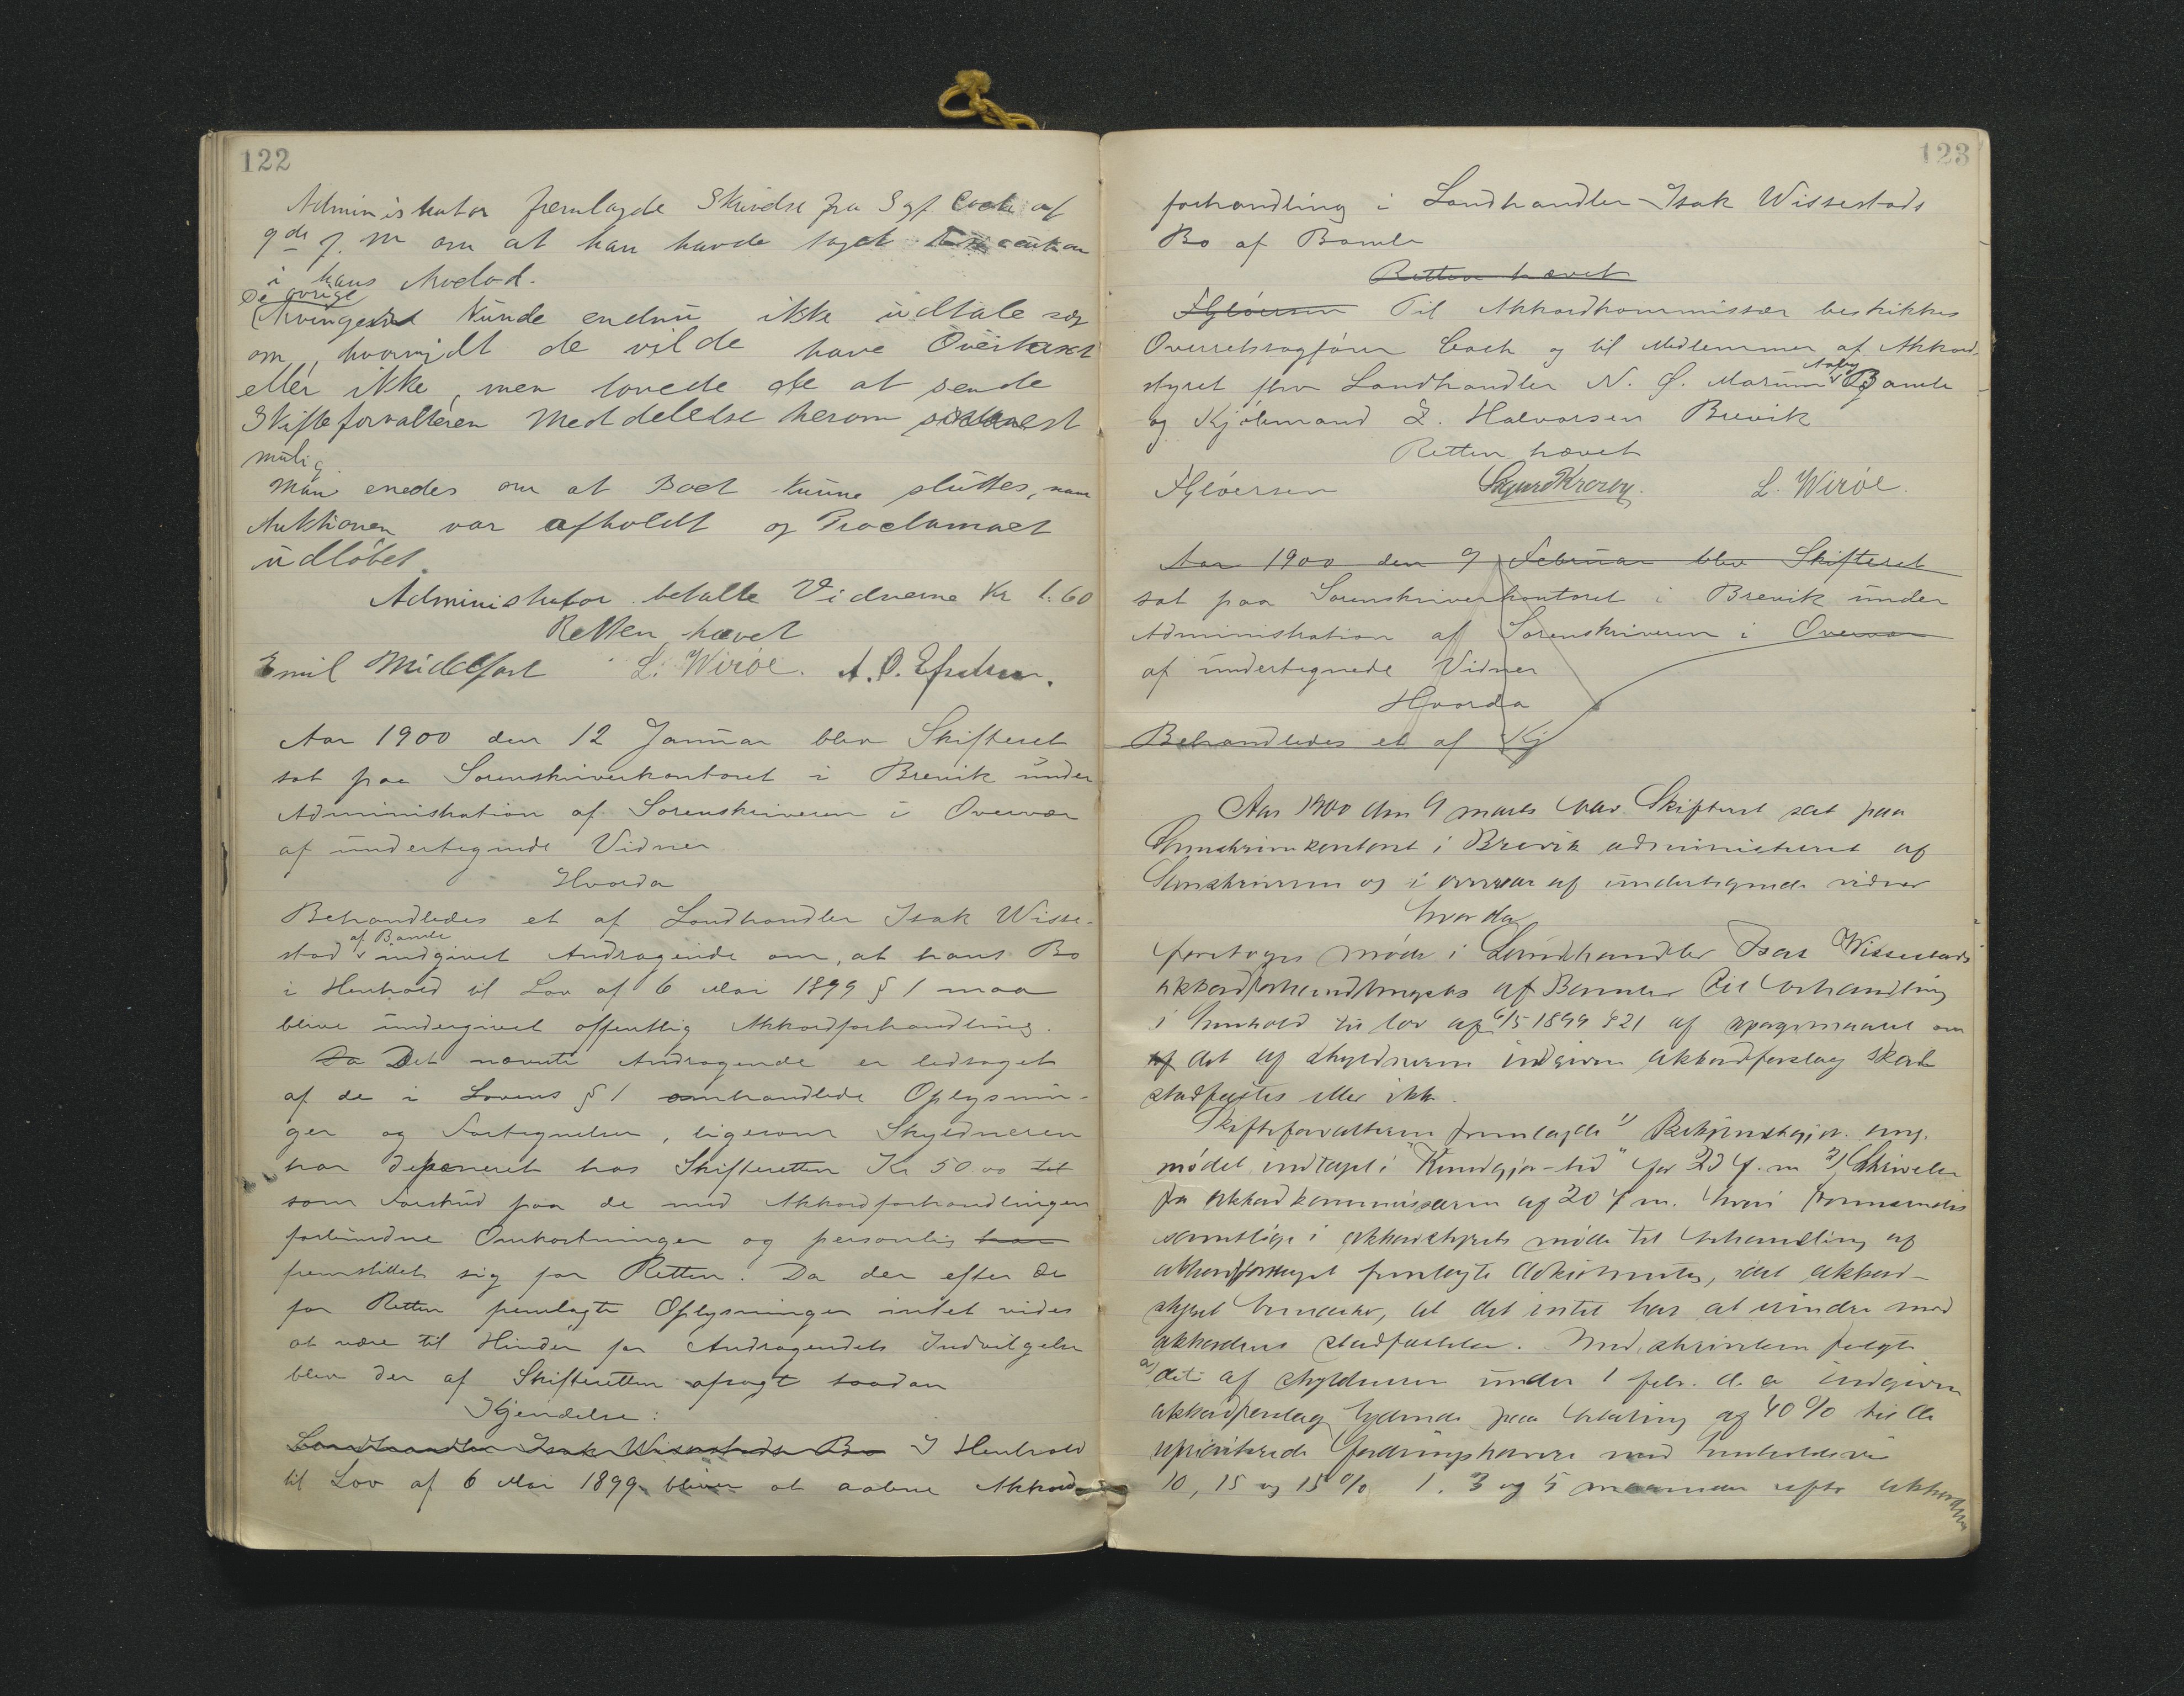 122
Administrator fremlagde Skrivelse fra Sgf Coch af
9de f. M om at han havde taget
i hans Arvelod.
De øvrige
Arvinger kunde endnu ikke udtale sig
om, hvorvidt de vilde have Overtaxt
eller ikke, men lovede de at sende
Skifteforvalteren Meddelelse herom snarest
mulig.
Man enedes om at Boet kunne sluttes, naar
Auktionen var afholdt og Proclamaet
udløbet.
Administrator betalte Vidnerne Kr 1.60
Retten hævet
Emil Middelfart L. Wirøe. A. O.
Aar 1900 den 12 Januar blev Skifteret
sat paa Sorenskriverkontoret i Brevik under
Administration af Sorenskriveren i Overvær
af undertegnede Vidner
Hvorda
Behandledes et af Landhandler Isak Wisse-
af Bamle
stad indgivet Andragende om, at hans Bo
i Henhold til Lov af 6 Mai 1899 § 1 maa
blive undergivet offentlig Akkordforhandling.
Da Det nævnte Andragende er ledsaget
af de i Lovens § 1 omhandlede Oplysnin-
ger og Fortegnelser, ligesom Skyldneren
har deponeret hos Skifteretten Kr 50.00 til
som Forskud paa de med Akkordforhandlingen
forbundne Omkostninger og personlig har
fremstillet sig for Retten. Da der efter de
for Retten fremlagte Oplysninger intet vides
at være til Hinder for Andragendets Indvilgelse
blev der af Skifteretten afsagt saadan
Kjendelse:
Landhandler Isak Wissestads Bo I Henhold
til Lov af 6 Mai 1899 bliver at aabne Akkord-
123
forhandling i Landhandler Isak Wissestads
Bo af Bamle
Retten hævet
FGløersen Til Akkordkommissær beskikkes
Overretssagfører Coch og til Medlemmer af Akkord-
Aaby
styret Landhandler N. O. Bamle
og Kjøbmand L. Halvorsen Brevik
Retten hævet
FGløersen Sigurd L. Wirøe.
Aar 1900 den 9 Februar blev Skifteret
sat paa Sorenskriverkontoret i Brevik under
Administration af Sorenskriveren i Overvær
af undertegnede Vidner
Hvorda
Behandledes et af Kj
Aar 1900 den 9 marts blev Skifteret sat paa
Sorenskriverkontoret i Brevik administreret af
Sorenskriveren og i overvær af undertegnede vidner
hvorda
foretoges møde i Landhandler Isak Wissestads
akkordforhandlingsbo af Bamle til behandling
i henhold til lov af 6/5 1899 § 21 af spørgsmaalet om
af det af skyldneren indgivne akkordforslag skal
stadfæstes eller ikke.
Skifteforvalteren fremlagde 1) Bekjendtgjør. ang.
mødet indtaget i "Kundgjør-tid" for 23 f. m 2) Skrivelse
fra akkordkommissæren af 20 f m. hvori
samtlige i akkordstyrets møde til behandling af
akkordforslaget fremlagte dokumenter, idet akkord-
styret bemærker, at det intet har at erindre mod
akkordens stadfæstelse. Med skrivelsen fulgte
a) det af skyldneren under 1 febr. d. a indgivne
akkordforslag lydende paa betaling af 40 % til de
uprioriterede fordringshavere med henholdsvis
10, 15 og 15 % 1, 3 og 5 maaneder efter akkordens